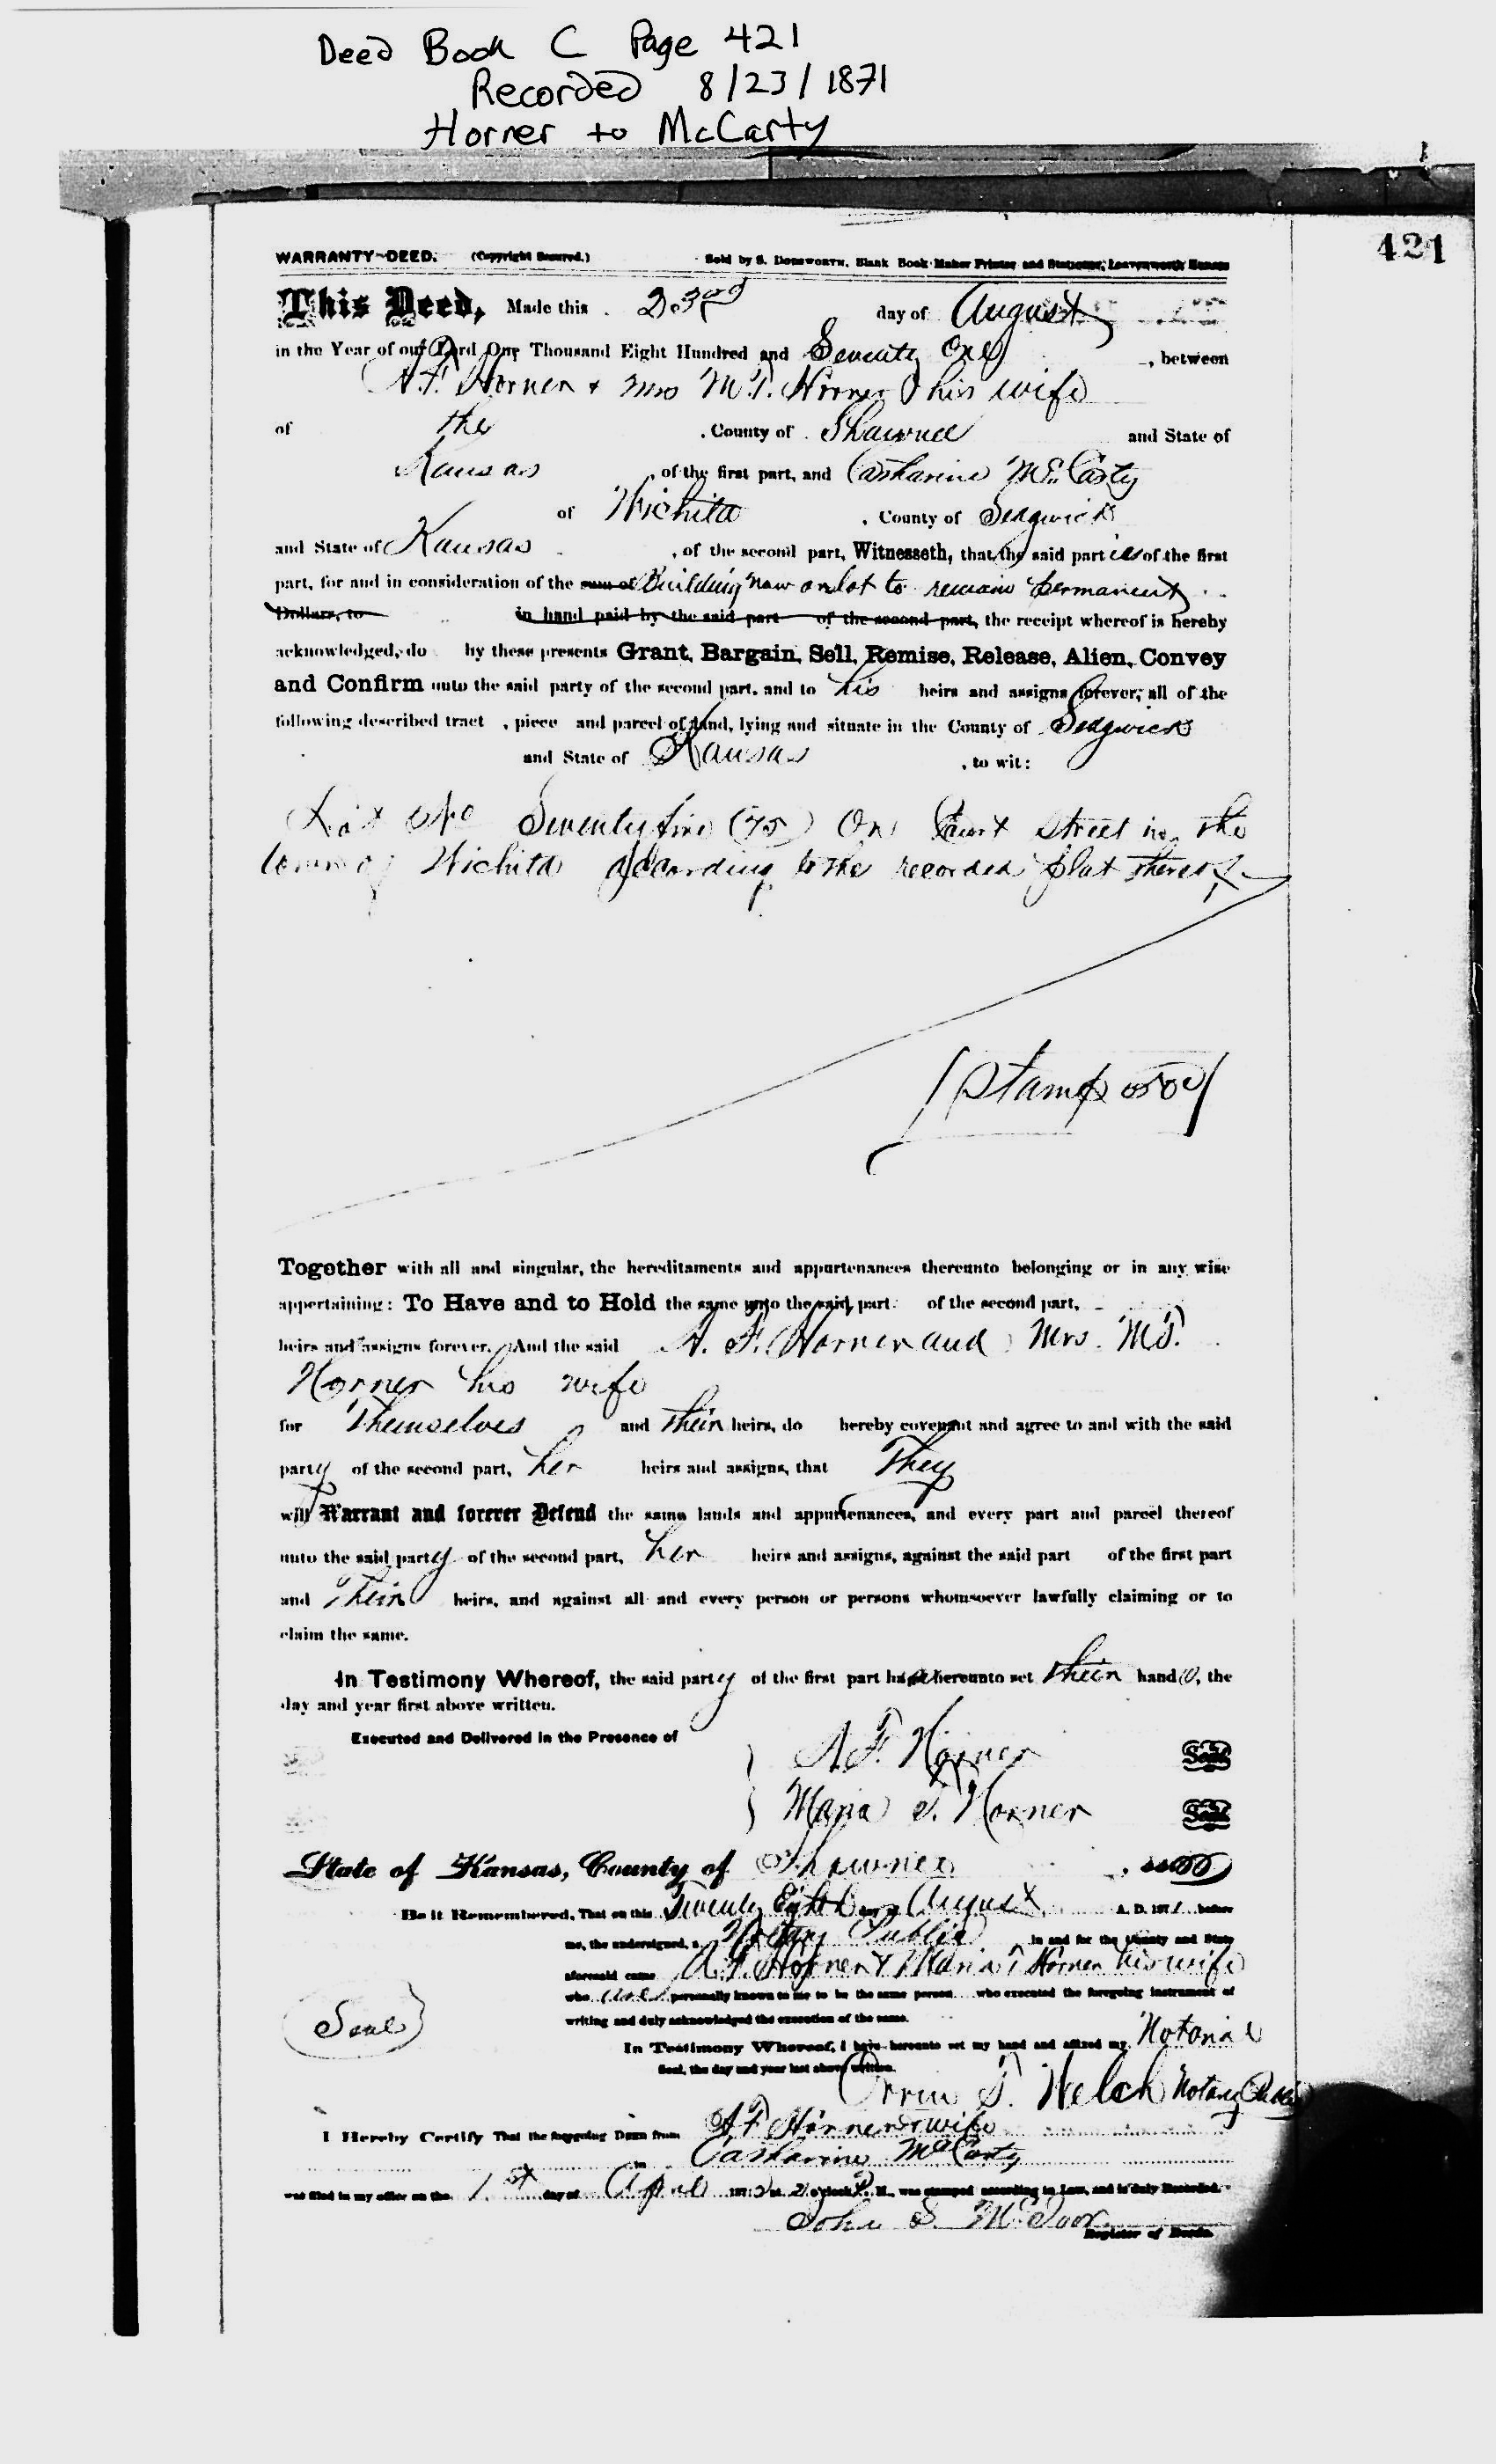 Deed Book C Page 421
Recorded 8/23/1871
Horner to McCarty
421
WARRANTY-DEED. (Copyright Secured.) Sold by S. Dodsworth, Blank Book Maker Printer and Stationer, Leavenworth Kansas
This Deed, Made this 23rd day of August
in the Year of our Lord One Thousand Eight Hundred and Seventy One, between
A.F. Horner & Mrs M.T. Horner his wife
of the County of Shawnee and State of
Kansas, of the first part, and Catharine McCarty
of Wichita, County of Sedgwick
and State of Kansas, of the second part, Witnesseth, that the said parties of the first
part, for and in consideration of the sum of Building now on lot to remain permanent
Dollars, to in hand paid by the said part of the second part, the receipt whereof is hereby
acknowledged, do by these presents Grant, Bargain, Sell, Remise, Release, Alien, Convey
and Confirm unto the said party of the second part, and to his heirs and assigns forever, all of the
following described tract, piece and parcel of land, lying and situate in the County of Sedgwick
and State of Kansas, to wit:
Lot No Seventy five (75) On Court Street in the
town of Wichita according to the recorded plat thereof
Stamp
Together with all and singular, the hereditaments and appurtenances thereunto belonging or in any wise
appertaining: To Have and to Hold the same unto the said part of the second part,
heirs and assigns forever. And the said A. F. Horner and Mrs. M.T.
Horner his wife
for Themselves and their heirs, do hereby covenant and agree to and with the said
party of the second part, her heirs and assigns, that They
will Warrant and forever Defend the same lands and appurtenances, and every part and parcel thereof
unto the said party of the second part, her heirs and assigns, against the said part of the first part
and Their heirs, and against all and every person or persons whomsoever lawfully claiming or to
claim the same.
In Testimony Whereof, the said party of the first part have hereunto set their hands, the
day and year first above written.
Executed and Delivered in the Presence of
A.F. Horner Seal
Maria T. Horner Seal
State of Kansas, County of Shawnee, ss
Be it Remembered, That on this Twenty Eighth day of August A. D. 1871 before
me, the undersigned, a Notary Public in and for the County and State
aforesaid came A.F. Horner & Maria T Horner his wife
who are personally known to me to be the same person who executed the foregoing instrument of
writing and duly acknowledged the execution of the same.
Seal
In Testimony Whereof, I have hereunto set my hand and affixed my Notarial
Seal, the day and year last above written.
Orrin T. Welch Notary Public
I Hereby Certify That the foregoing Deed from A F Horner & wife
to Catharine McCarty
was filed in my office on the 1st day of April 187 at 2 o'clock P. M., was stamped according to Law, and is duly Recorded.
John S. McIvor
Register of Deeds.